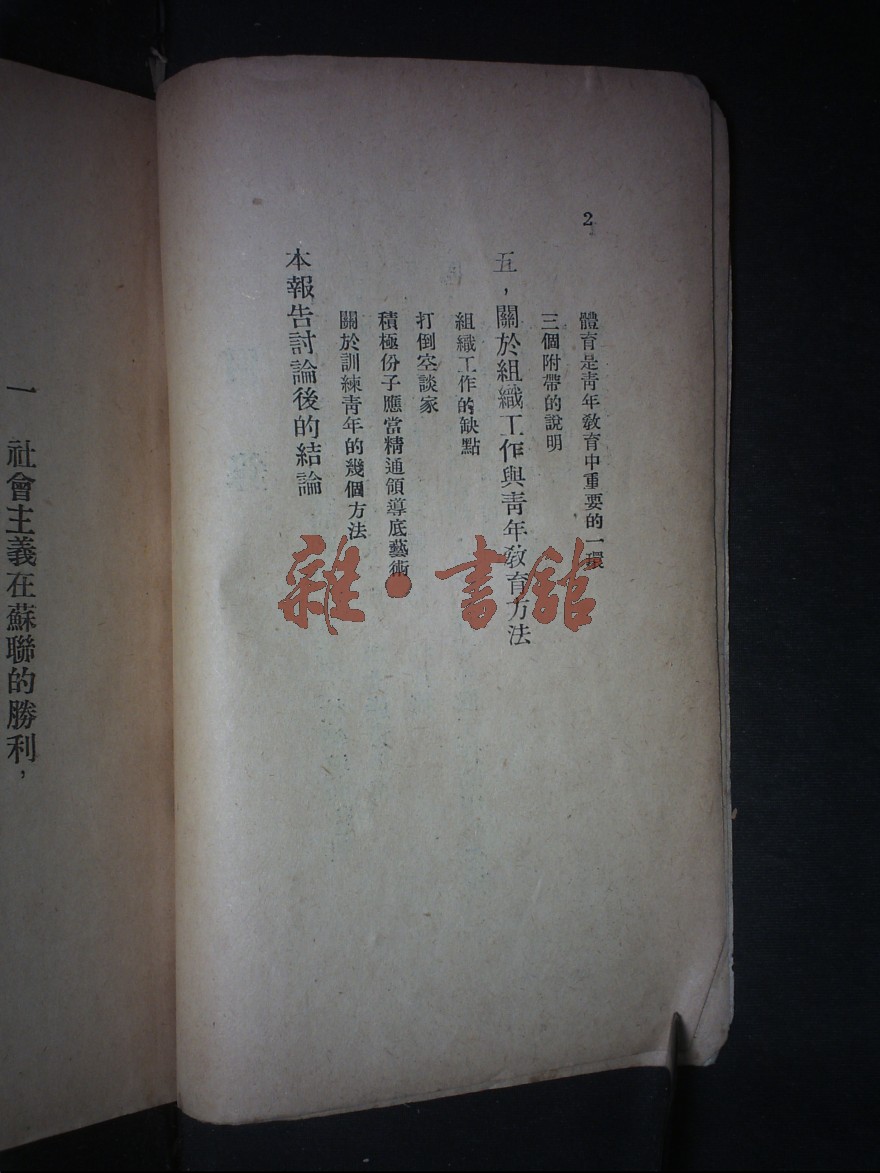 2
體育是青年敎育中重要的一環
三個附帶的說明
五，關於組織工作與青年敎育方法
組織工作的缺點
打倒空談家
積極份子應當精通領導底藝術
關於訓練青年的幾個方法
本報告討論後的結論
一　社會主義在蘇聯的勝利，
雜·書館